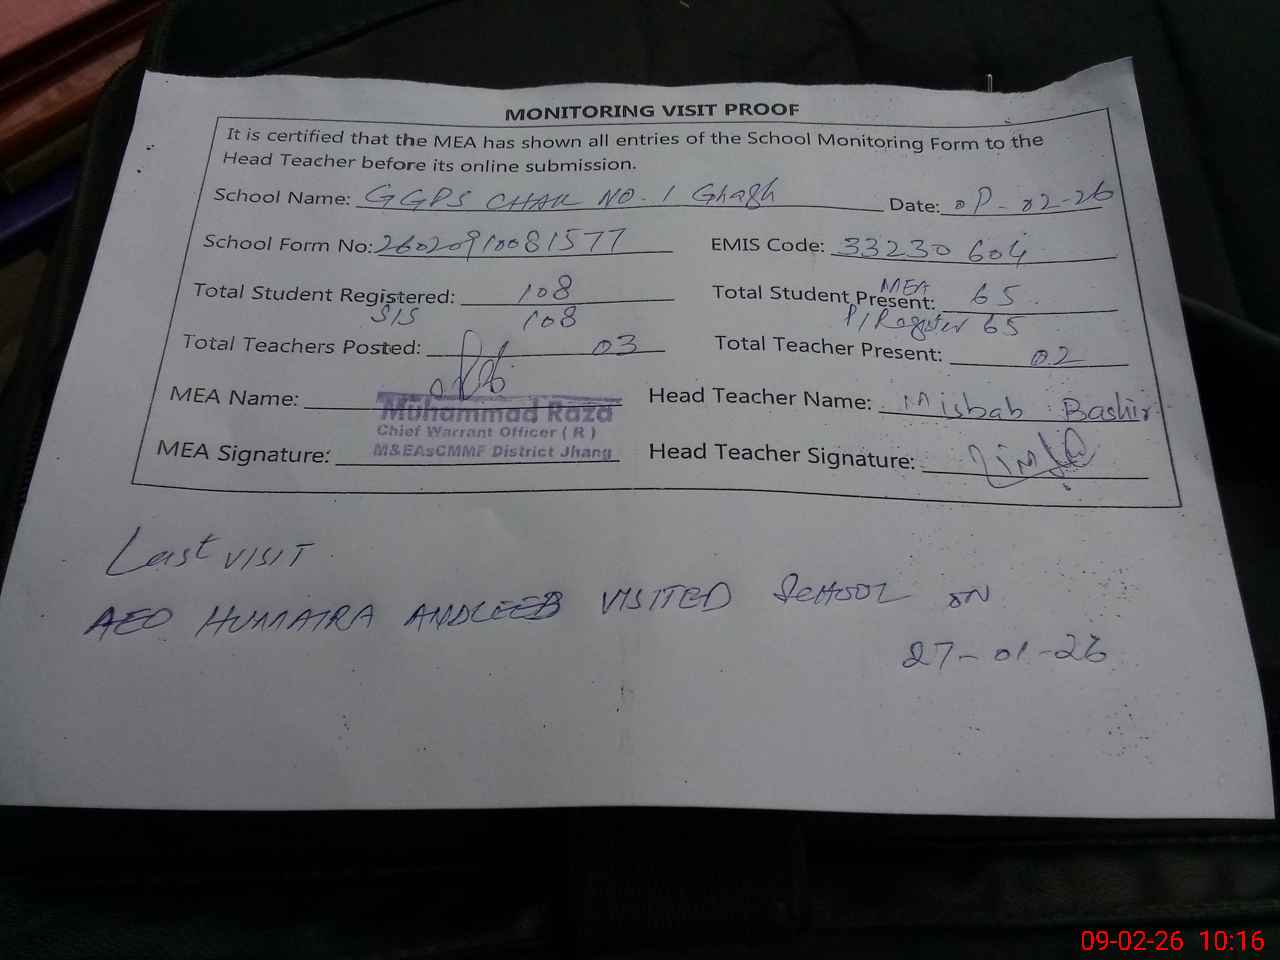 MONITORING VISIT PROOF
It is certified that the MEA has shown all entries of the School Monitoring Form to the
Head Teacher before its online submission.
School Name: GGPS CHAK NO. 1 Ghagh Date: 09-02-26
School Form No: 26020910081577 EMIS Code: 33230604
Total Student Registered: 108 Total Student Present: MEA 65
SIS 108 P/Register 65
Total Teachers Posted: 03 Total Teacher Present: 02
MEA Name: Muhammad Raza Head Teacher Name: Misbah Bashir
Chief Warrant Officer ( R )
MEA Signature: M&EAsCMMF District Jhang Head Teacher Signature:
Last VISIT
AEO HUMAIRA ANDLEEB VISITED SCHOOL ON
27-01-26
09-02-26 10:16